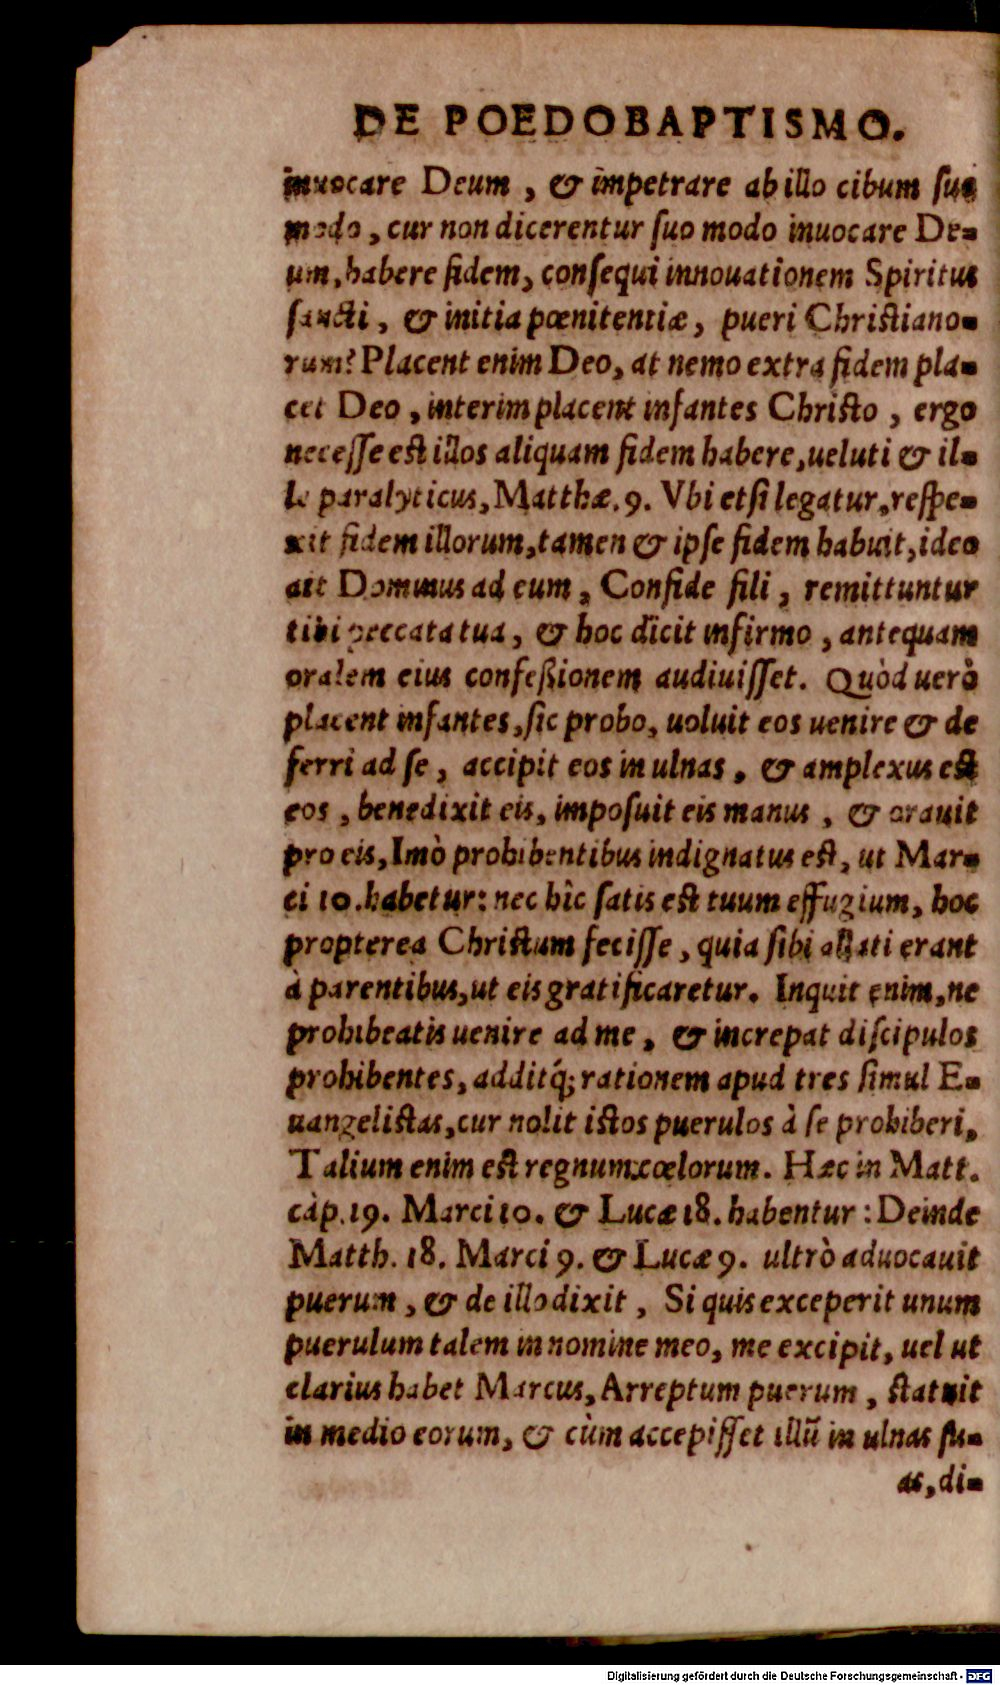 DE POEDOBAPTISMO.
inuocare Deum, & impetrare ab illo cibum suo
modo, cur non dicerentur suo modo inuocare De-
um, habere fidem, consequi innouationem Spiritus
sancti, & initia pœnitentiæ, pueri Christiano-
rum? Placent enim Deo, at nemo extra fidem pla-
cet Deo, interim placent infantes Christo, ergo
necesse est illos aliquam fidem habere, ueluti & il-
le paralyticus, Matthæ. 9. Vbi etsi legatur, respe-
xit fidem illorum, tamen & ipse fidem habuit, ideo
ait Dominus ad eum, Confide fili, remittuntur
tibi peccata tua, & hoc dicit infirmo, antequam
oralem eius confeßionem audiuisset. Quòd uerò
placent infantes, sic probo, uoluit eos uenire & de
ferri ad se, accipit eos in ulnas, & amplexus est
eos, benedixit eis, imposuit eis manus, & orauit
pro eis, Imò prohibentibus indignatus est, ut Mar-
ci 10. habetur: nec hîc satis est tuum effugium, hoc
propterea Christum fecisse, quia sibi allati erant
à parentibus, ut eis gratificaretur. Inquit enim, ne
prohibeatis uenire ad me, & increpat discipulos
prohibentes, additq́; rationem apud tres simul E-
uangelistas, cur nolit istos puerulos à se prohiberi,
Talium enim est regnum cœlorum. Hæc in Matt.
càp. 19. Marci 10. & Lucæ 18. habentur: Deinde
Matth. 18. Marci 9. & Lucæ 9. ultrò aduocauit
puerum, & de illo dixit, Si quis exceperit unum
puerulum talem in nomine meo, me excipit, uel ut
clarius habet Marcus, Arreptum puerum, statuit
in medio eorum, & cùm accepisset illū in ulnas su-
as, di-
Digitalisierung gefördert durch die Deutsche Forschungsgemeinschaft - DFG